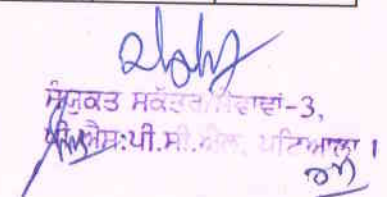 ਸੰਯੁਕਤ ਸਕੱਤਰ/ਸੇਵਾਵਾਂ-3,
ਪੀ.ਐਸ:ਪੀ.ਸੀ.ਐਲ, ਪਟਿਆਲਾ ।